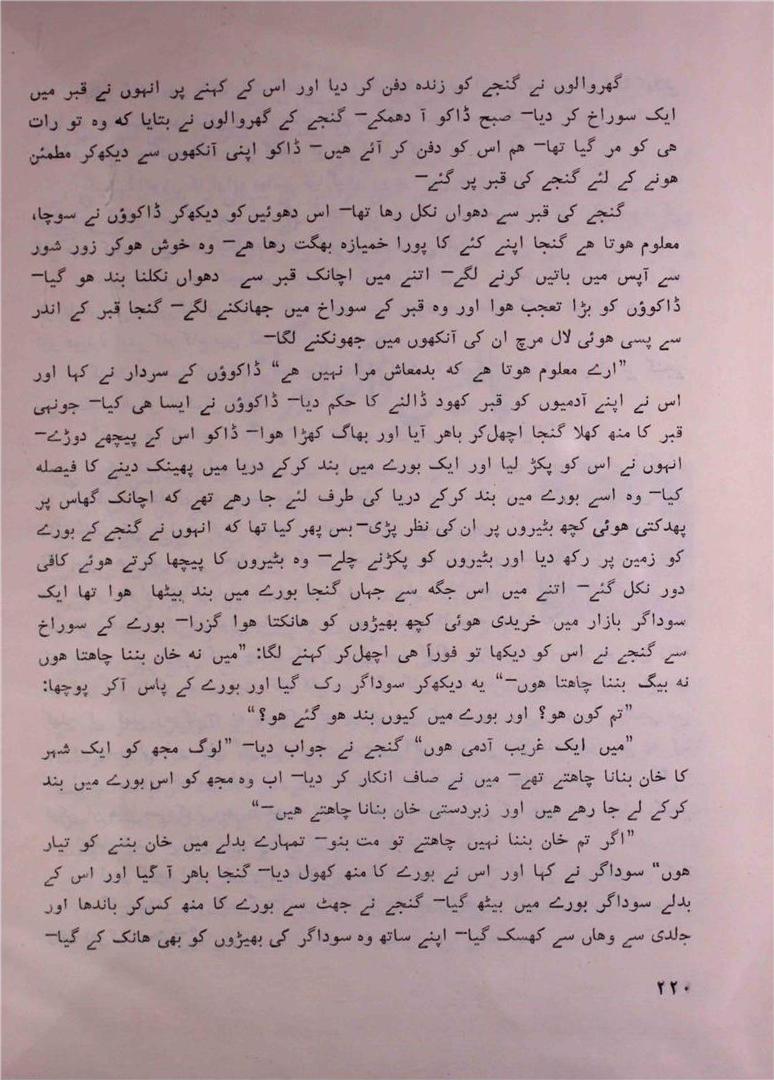 گھروالوں نے گنجے کو زندہ دفن کر دیا اور اس کے کہنے پر انہوں نے قبر میں
ایک سوراخ کر دیا— صبح ڈاکو آ دھمکے— گنجے کے گھروالوں نے بتایا که وہ تو رات
ھی کو مر گیا تھا— ھم اس کو دفن کر آئے ھیں— ڈاکو اپنی آنکھوں سے دیکھکر مطمئن
ھونے کے لئے گنجے کی قبر پر گئے—
گنجے کی قبر سے دھواں نکل رھا تھا— اس دھوئیں کو دیکھکر ڈاکوؤں نے سوچا،
معلوم ھوتا ھے گنجا اپنے کئے کا پورا خمیازہ بھگت رھا ھے— وہ خوش ھوکر زور شور
سے آپس میں باتیں کرنے لگے— اتنے میں اچانک قبر سے دھواں نکلنا بند ھو گیا—
ڈاکوؤں کو بڑا تعجب ھوا اور وہ قبر کے سوراخ میں جھانکنے لگے— گنجا قبر کے اندر
سے پسی ھوئی لال مرچ ان کی آنکھوں میں جھونکنے لگا—
”ارے معلوم ھوتا ھے که بدمعاش مرا نہیں ھے“ ڈاکوؤں کے سردار نے کہا اور
اس نے اپنے آدمیوں کو قبر کھود ڈالنے کا حکم دیا— ڈاکوؤں نے ایسا ھی کیا— جونہی
قبر کا منھ کھلا گنجا اچھل‌کر باھر آیا اور بھاگ کھڑا ھوا— ڈاکو اس کے پیچھے دوڑے—
انہوں نے اس کو پکڑ لیا اور ایک بورے میں بند کرکے دریا میں پھینک دینے کا فیصلہ
کیا— وہ اسے بورے میں بند کرکے دریا کی طرف لئے جا رھے تھے که اچانک گھاس پر
پھدکتی ھوئی کچھ بٹیروں پر ان کی نظر پڑی— بس پھر کیا تھا که انہوں نے گنجے کے بورے
کو زمین پر رکھ دیا اور بٹیروں کو پکڑنے چلے— وہ بٹیروں کا پیچھا کرتے ھوئے کافی
دور نکل گئے— اتنے میں اس جگه سے جہاں گنجا بورے میں بند بیٹھا ھوا تھا ایک
سوداگر بازار میں خریدی ھوئی کچھ بھیڑوں کو ھانکتا ھوا گزرا— بورے کے سوراخ
سے گنجے نے اس کو دیکھا تو فوراً ھی اچھل‌کر کہنے لگا: ”میں نه خان بننا چاھتا ھوں
نه بیگ بننا چاھتا ھوں—“ یه دیکھکر سوداگر رک گیا اور بورے کے پاس آکر پوچھا:
”تم کون ھو؟ اور بورے میں کیوں بند ھو گئے ھو؟“
”میں ایک غریب آدمی ھوں“ گنجے نے جواب دیا— ”لوگ مجھ کو ایک شہر
کا خان بنانا چاھتے تھے— میں نے صاف انکار کر دیا— اب وہ مجھ کو اس بورے میں بند
کرکے لے جا رھے ھیں اور زبردستی خان بنانا چاھتے ھیں—“
”اگر تم خان بننا نہیں چاھتے تو مت بنو— تمہارے بدلے میں خان بننے کو تیار
ھوں“ سوداگر نے کہا اور اس نے بورے کا منھ کھول دیا— گنجا باھر آ گیا اور اس کے
بدلے سوداگر بورے میں بیٹھ گیا— گنجے نے جھٹ سے بورے کا منھ کس‌کر باندھا اور
جلدی سے وھاں سے کھسک گیا— اپنے ساتھ وہ سوداگر کی بھیڑوں کو بھی ھانک کے گیا—
۲۲۰